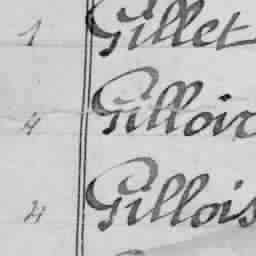 1 Gillet
4 Gilloir
4 Gillois